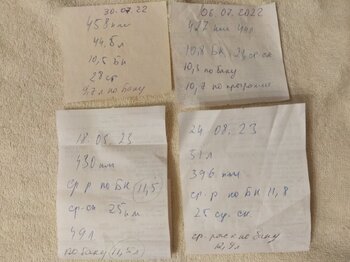 30.07.22
458 км
44,8 л
10,5 БК
28 ск
9,7 л по баку
06.07.2022
427 км 44 л
10,8 БК 24 ср ск
10,3 по баку
10,7 по программе
18.05.23.
430 км
ср. р по БК (11,5)
ср. ск 25 км
49 л
по баку (11,4 л)
24.08.23
51 л
396 км
ср. р по БК 11,8
25 ср. ск.
ср. расх по баку
12,8 л